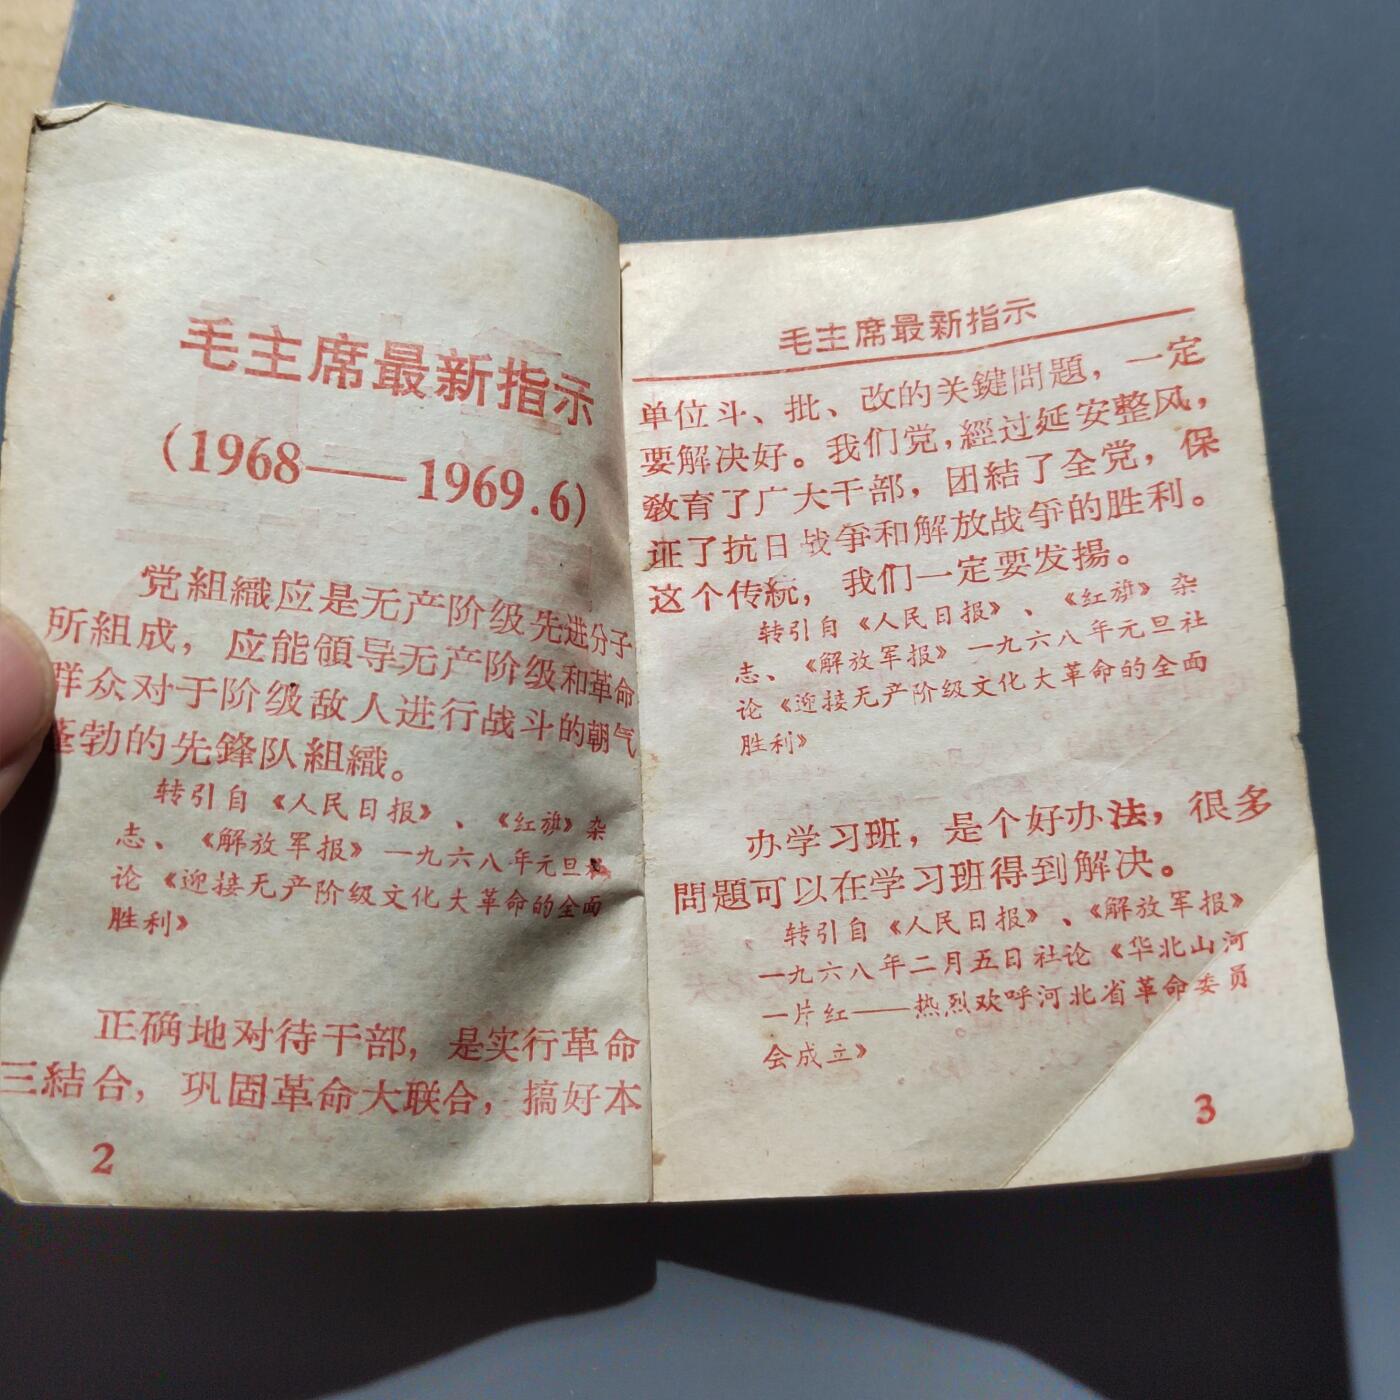 毛主席最新指示
(1968——1969.6)
党組織应是无产阶级先进分子
所組成，应能領导无产阶级和革命
群众对于阶级敌人进行战斗的朝气
蓬勃的先鋒队組織。
转引自《人民日报》、《红旗》杂
志、《解放军报》一九六八年元旦社
论《迎接无产阶级文化大革命的全面
胜利》
正确地对待干部，是实行革命
三結合，巩固革命大联合，搞好本
2
毛主席最新指示
单位斗、批、改的关鍵問題，一定
要解决好。我们党，經过延安整风，
敎育了广大干部，团結了全党，保
证了抗日战爭和解放战爭的胜利。
这个传統，我们一定要发揚。
转引自《人民日报》、《红旗》杂
志、《解放军报》一九六八年元旦社
论《迎接无产阶级文化大革命的全面
胜利》
办学习班，是个好办法，很多
問題可以在学习班得到解决。
转引自《人民日报》、《解放军报》
一九六八年二月五日社论《华北山河
一片红——热烈欢呼河北省革命委员
会成立》
3